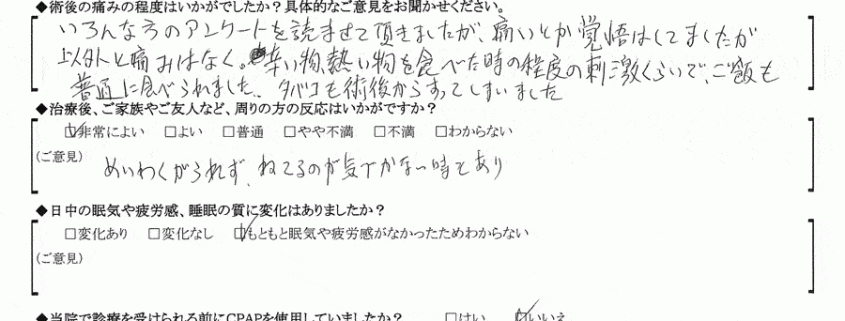 ◆術後の痛みの程度はいかがでしたか？具体的なご意見をお聞かせください。
いろんな方のアンケートを読ませて頂きましたが、痛いとか覚悟はしてましたが
以外と痛みはなく。辛い物、熱い物を食べた時の程度の刺激くらいで、ご飯も
普通に食べられました。タバコも術後からすってしまいました
◆治療後、ご家族やご友人など、周りの方の反応はいかがですか？
☑非常によい　□よい　□普通　□やや不満　□不満　□わからない
(ご意見)
めいわくがられず、ねてるのが気づかない時もあり
◆日中の眠気や疲労感、睡眠の質に変化はありましたか？
□変化あり　□変化なし　☑もともと眠気や疲労感がなかったためわからない
(ご意見)
◆当院で診療を受けられる前にCPAPを使用していましたか？　□はい　☑いいえ